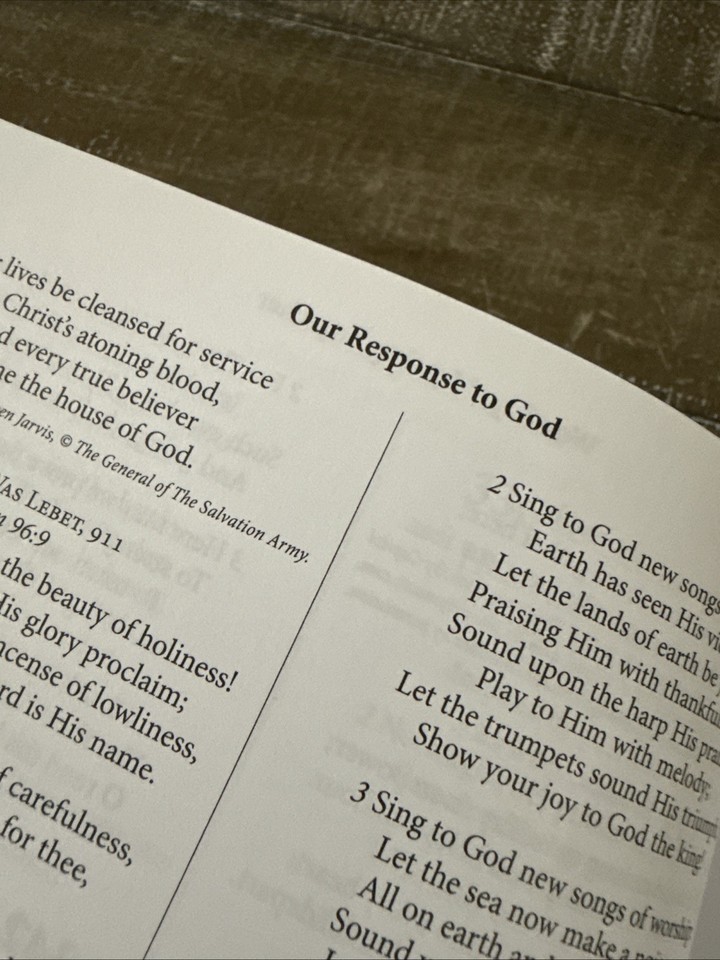 Our Response to God
lives be cleansed for service
Christ's atoning blood,
every true believer
the house of God.
Jarvis, © The General of The Salvation Army.
WAS LEBET, 911
96:9
the beauty of holiness!
His glory proclaim;
of lowliness,
is His name.
carefulness,
for thee,
2 Sing to God new songs
Earth has seen His
Let the lands of earth be
Praising Him with
Sound upon the harp His
Play to Him with melody;
Let the trumpets sound His
Show your joy to God the king!
3 Sing to God new songs of worship
Let the sea now make a
All on earth
Sound